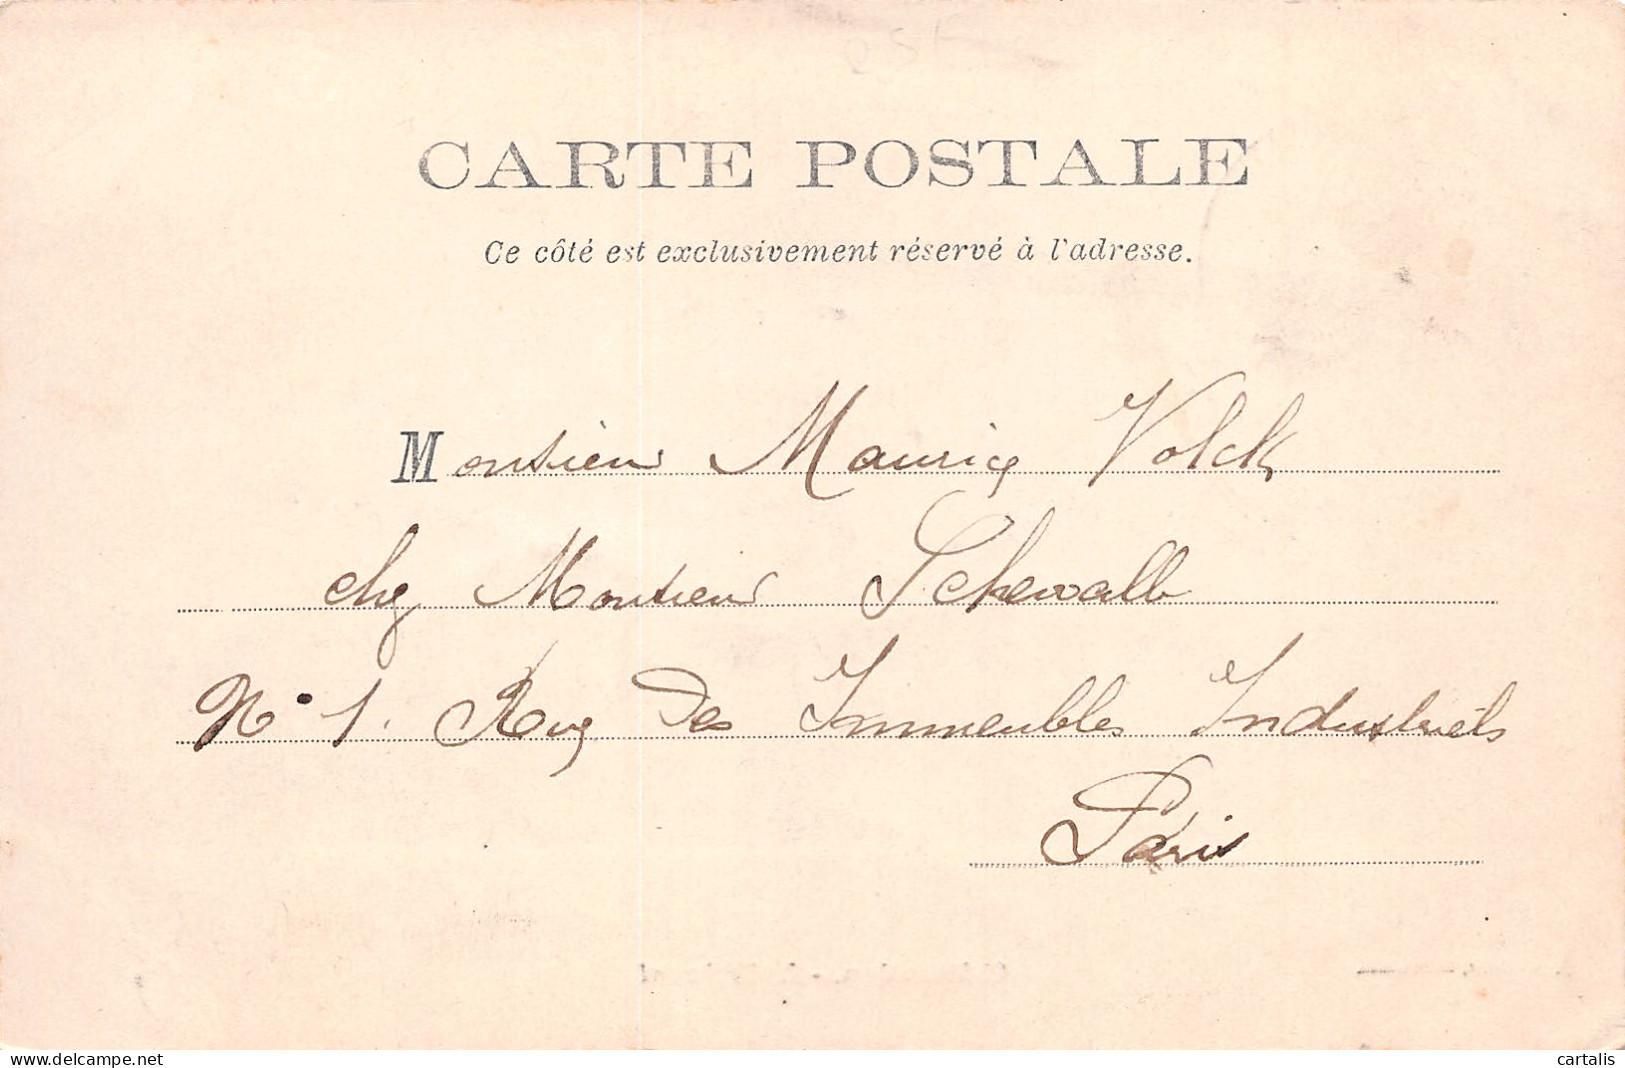 CARTE POSTALE
Ce côté est exclusivement réservé à l'adresse.
Monsieur Maurice Volck
chez Monsieur
N° 1. Rue Des Immeubles Industriels
Paris
www.delcampe.net
cartalis